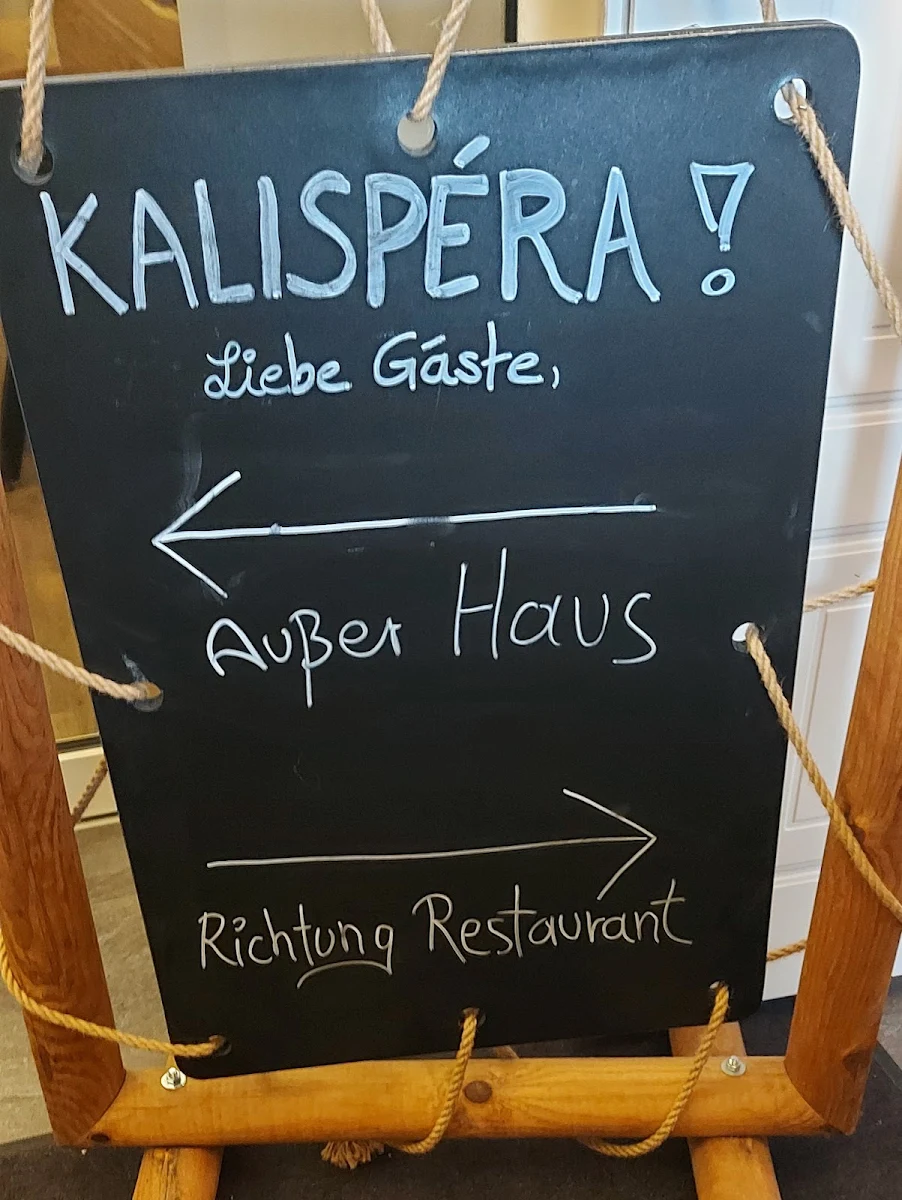 KALISPÉRA!
Liebe Gäste,
Außer Haus
Richtung Restaurant